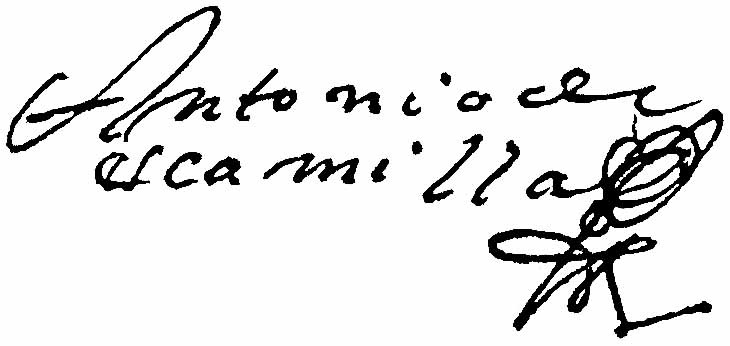 Antonio de
escamilla